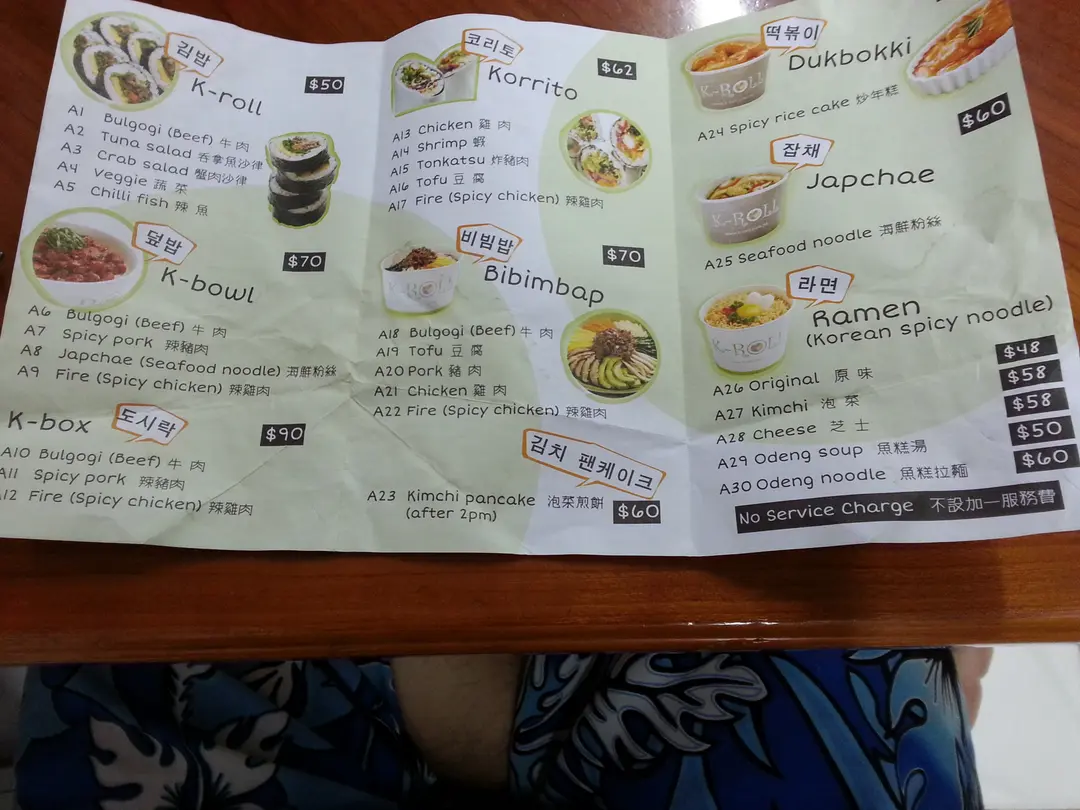 김밥
K-roll
$50
A1 Bulgogi (Beef) 牛肉
A2 Tuna salad 吞拿魚沙律
A3 Crab salad 蟹肉沙律
A4 Veggie 蔬菜
A5 Chilli fish 辣魚
덮밥
K-bowl
$70
A6 Bulgogi (Beef) 牛肉
A7 Spicy pork 辣豬肉
A8 Japchae (Seafood noodle) 海鮮粉絲
A9 Fire (Spicy chicken) 辣雞肉
K-box
도시락
$90
A10 Bulgogi (Beef) 牛肉
A11 Spicy pork 辣豬肉
12 Fire (Spicy chicken) 辣雞肉
코리토
Korrito
$62
A13 Chicken 雞肉
A14 Shrimp 蝦
A15 Tonkatsu 炸豬肉
A16 Tofu 豆腐
A17 Fire (Spicy chicken) 辣雞肉
비빔밥
Bibimbap
$70
K-ROLL
A18 Bulgogi (Beef) 牛肉
A19 Tofu 豆腐
A20 Pork 豬肉
A21 Chicken 雞肉
A22 Fire (Spicy chicken) 辣雞肉
김치 팬케이크
A23 Kimchi pancake 泡菜煎餅
(after 2pm)
$60
떡볶이
Dukbokki
K-ROLL
A24 Spicy rice cake 炒年糕
$60
잡채
Japchae
K-ROLL
A25 Seafood noodle 海鮮粉絲
라면
Ramen
(Korean spicy noodle)
K-ROLL
A26 Original 原味 $48
A27 Kimchi 泡菜 $58
A28 Cheese 芝士 $58
A29 Odeng soup 魚糕湯 $50
A30 Odeng noodle 魚糕拉麵 $60
No Service Charge 不設加一服務費